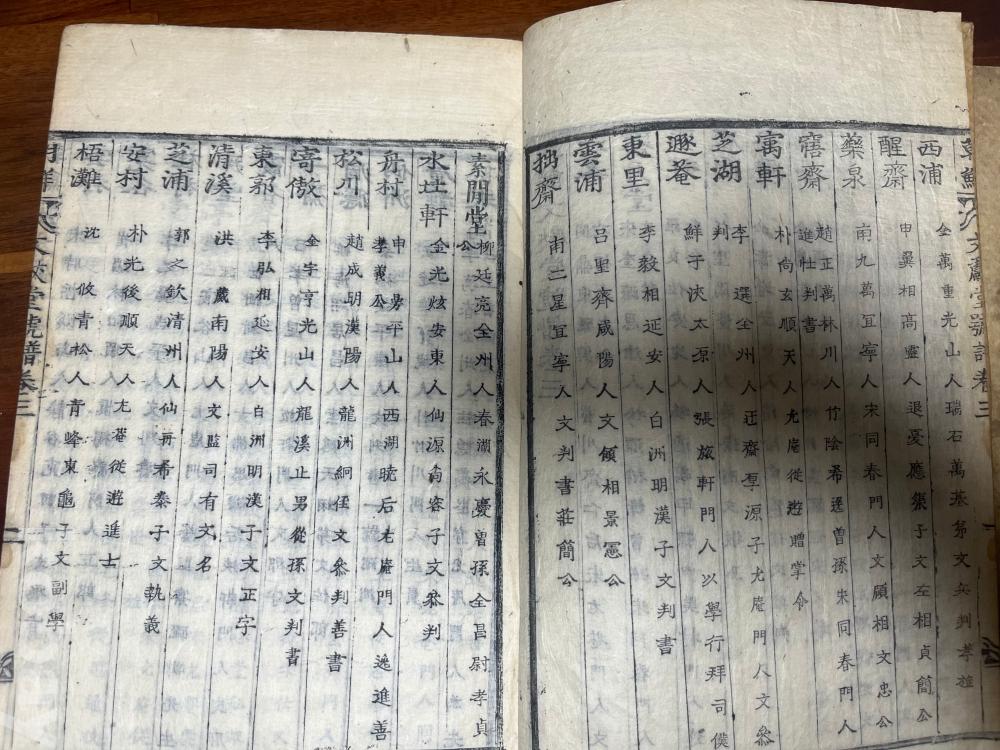 西浦 金萬重光山人瑞石萬基弟文兵判孝雄
醒齋 申翼相高靈人退憂應榘子文左相貞簡公
藥泉 南九萬宜寧人宋同春門人文領相文忠公
寤齋 趙正萬林川人竹陰希逸曾孫宋同春門人進壯判書
寓軒 朴尚玄順天人尤庵從遊贈掌令
芝湖 李選全州人迂齋厚源子尤庵門人文參判
遯菴 鮮于浹太原人張旅軒門人以學行拜司僕
東里 李殷相延安人白洲明漢子文判書
雲浦 呂聖齊咸陽人文領相景憲公
拙齋 南二星宜寧人文判書莊簡公
素閒堂 柳廷亮全州人春湖永慶曾孫全昌尉孝貞公
水北軒 金光炫安東人仙源尚容子文參判
舟村 申曼平山人西湖曉后尤庵門人逸進善孝義公
松川 趙成明漢陽人龍洲絅侄文參判善書
寄傲 金宇亨光山人龍溪止男從孫文判書
東郭 李弘相延安人白洲明漢子文正字
清溪 洪葳南陽人文監司有文名
芝浦 郭之欽清州人仙舟希泰子文執義
安村 朴光後順天人尤菴從遊進士
梧灘 沈攸青松人青峰東龜子文副學
文獻堂號譜卷三
二